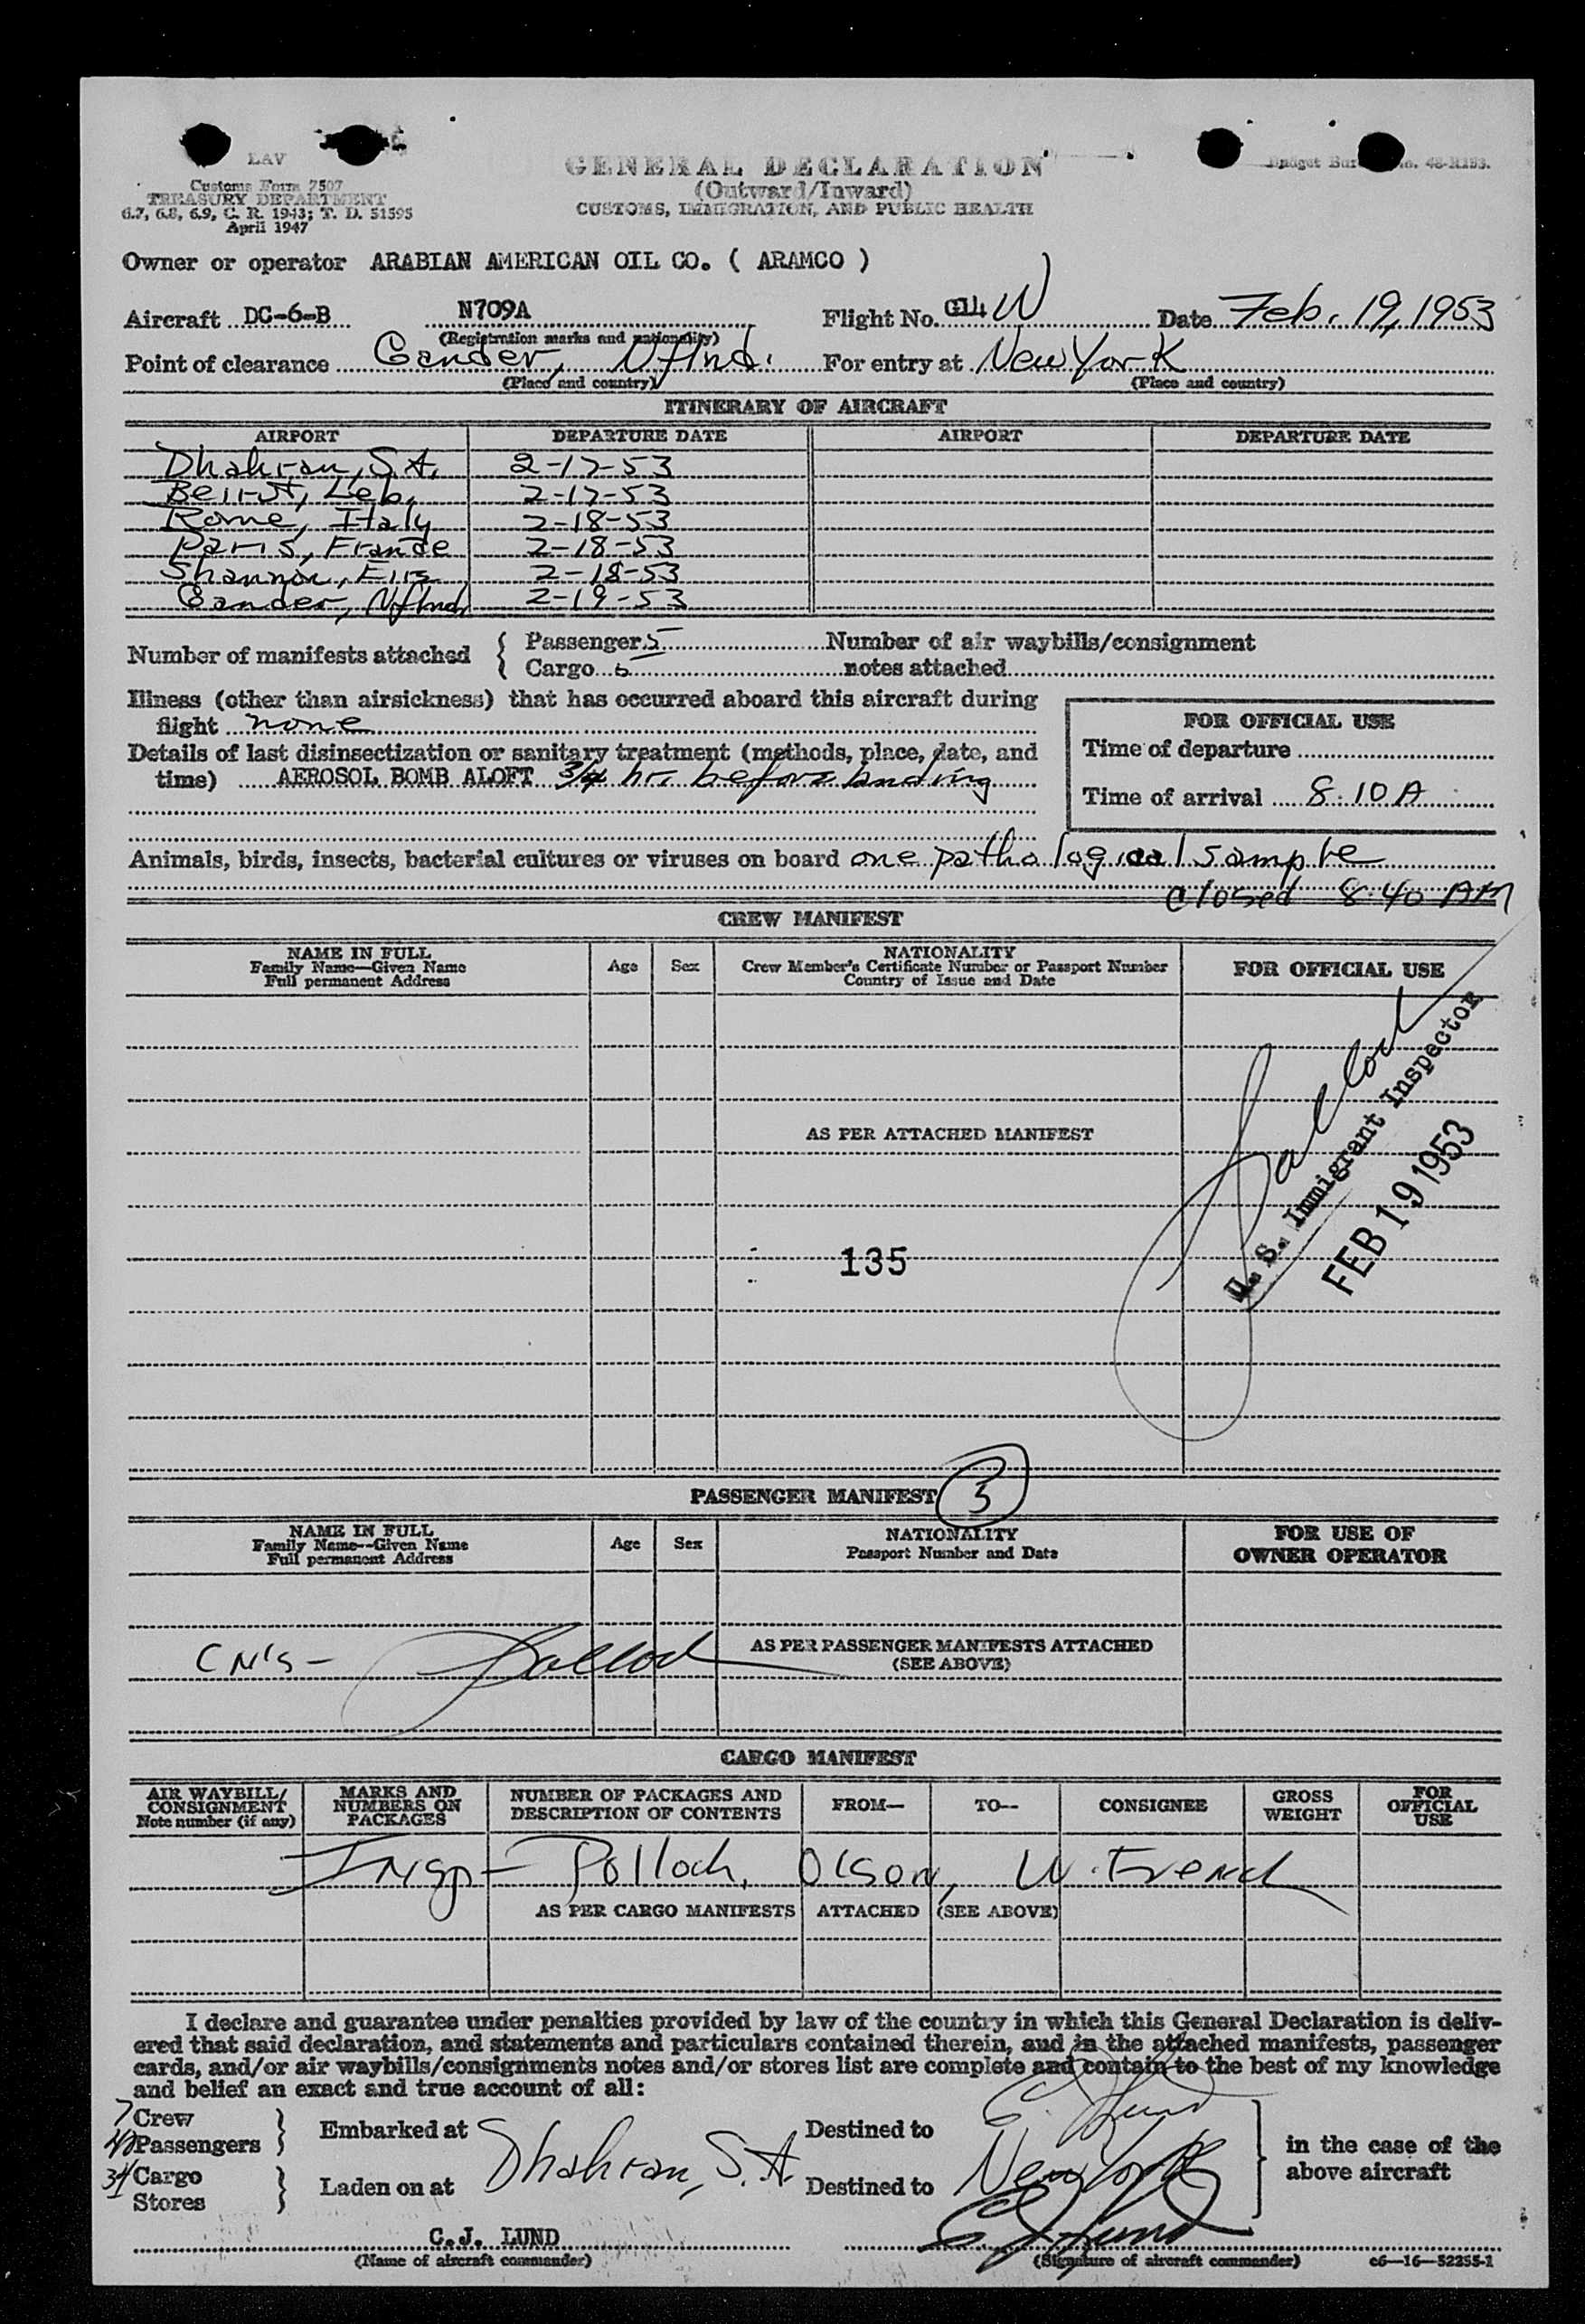 LAV
Customs Form 7507
TREASURY DEPARTMENT
6.7, 6.8, 6.9, C. R. 1943; T. D. 51595
April 1947
GENERAL DECLARATION
(Outward/Inward)
CUSTOMS, IMMIGRATION, AND PUBLIC HEALTH
Budget Bur No. 48-R193.
Owner or operator ARABIAN AMERICAN OIL CO. ( ARAMCO )
Aircraft DC-6-B N709A Flight No. G14 W Date Feb. 19, 1953
(Registration marks and nationality)
Point of clearance Gander, Nflnd. For entry at New York
(Place and country) (Place and country)
ITINERARY OF AIRCRAFT
AIRPORT DEPARTURE DATE AIRPORT DEPARTURE DATE
Dhahran, S.A. 2-17-53
Beirut, Leb. 2-17-53
Rome, Italy 2-18-53
Paris, France 2-18-53
Shannon, Eire 2-18-53
Gander, Nflnd 2-19-53
Number of manifests attached { Passenger 5 Number of air waybills/consignment
Cargo 6 notes attached
Illness (other than airsickness) that has occurred aboard this aircraft during
flight none
Details of last disinsectization or sanitary treatment (methods, place, date, and
time) AEROSOL BOMB ALOFT 3/4 hrs before landing
FOR OFFICIAL USE
Time of departure
Time of arrival 8:10 A
Animals, birds, insects, bacterial cultures or viruses on board one pathological sample
closed 8:40 AM
CREW MANIFEST
NAME IN FULL
Family Name—Given Name
Full permanent Address
Age
Sex
NATIONALITY
Crew Member's Certificate Number or Passport Number
Country of Issue and Date
FOR OFFICIAL USE
AS PER ATTACHED MANIFEST
135
U. S. Immigrant Inspector
FEB 19 1953
PASSENGER MANIFEST 3
NAME IN FULL
Family Name--Given Name
Full permanent Address
Age
Sex
NATIONALITY
Passport Number and Date
FOR USE OF
OWNER OPERATOR
CN's -
AS PER PASSENGER MANIFESTS ATTACHED
(SEE ABOVE)
CARGO MANIFEST
AIR WAYBILL/
CONSIGNMENT
Note number (if any)
MARKS AND
NUMBERS ON
PACKAGES
NUMBER OF PACKAGES AND
DESCRIPTION OF CONTENTS
FROM—
TO--
CONSIGNEE
GROSS
WEIGHT
FOR
OFFICIAL
USE
Insp - Polloch, Olson, W. French
AS PER CARGO MANIFESTS ATTACHED (SEE ABOVE)
I declare and guarantee under penalties provided by law of the country in which this General Declaration is deliv-
ered that said declaration, and statements and particulars contained therein, and in the attached manifests, passenger
cards, and/or air waybills/consignments notes and/or stores list are complete and contain to the best of my knowledge
and belief an exact and true account of all:
7 Crew
Passengers
34 Cargo
Stores
Embarked at
Laden on at
Dhahran, S.A.
Destined to
Destined to
New York
in the case of the
above aircraft
C.J. LUND
(Name of aircraft commander)
C J Lund
(Signature of aircraft commander)
c6—16—52255-1